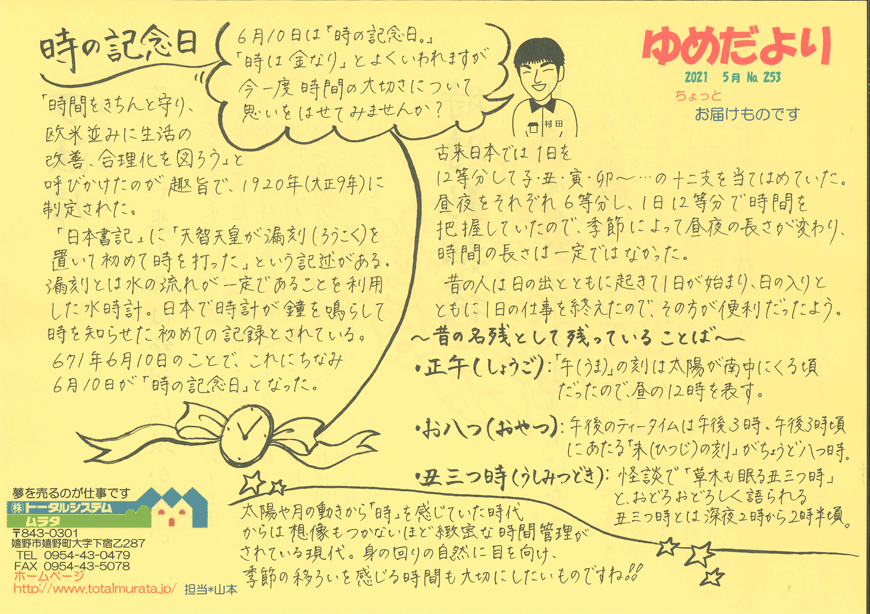 時の記念日
6月10日は「時の記念日。」
「時は金なり」とよくいわれますが
今一度時間の大切さについて
思いをはせてみませんか?
村田
ゆめだより
2021 5月 No. 253
ちょっと
お届けものです
「時間をきちんと守り、
欧米並みに生活の
改善、合理化を図ろう」と
呼びかけたのが趣旨で、1920年(大正9年)に
制定された。
「日本書記」に「天智天皇が漏刻(ろうこく)を
置いて初めて時を打った」という記述がある。
漏刻とは水の流れが一定であることを利用
した水時計。日本で時計が鐘を鳴らして
時を知らせた初めての記録とされている。
671年6月10日のことで、これにちなみ
6月10日が「時の記念日」となった。
古来日本では1日を
12等分して子・丑・寅・卯〜…の十二支を当てはめていた。
昼夜をそれぞれ6等分し、1日12等分で時間を
把握していたので、季節によって昼夜の長さが変わり、
時間の長さは一定ではなかった。
昔の人は日の出とともに起きて1日が始まり、日の入りと
ともに1日の仕事を終えたので、その方が便利だったよう。
〜昔の名残として残っていることば〜
・正午(しょうご):「午(うま)」の刻は太陽が南中にくる頃
だったので、昼の12時を表す。
・お八つ(おやつ):午後のティータイムは午後3時、午後3時頃
にあたる「未(ひつじ)の刻」がちょうど八つ時。
・丑三つ時(うしみつどき):怪談で「草木も眠る丑三つ時」
と、おどろおどろしく語られる
丑三つ時とは深夜2時から2時半頃。
太陽や月の動きから「時」を感じていた時代
からは想像もつかないほど緻密な時間管理が
されている現代。身の回りの自然に目を向け、
季節の移ろいを感じる時間も大切にしたいものですね!!
夢を売るのが仕事です
(株)トータルシステム
ムラタ
〒843-0301
嬉野市嬉野町大字下宿乙287
TEL 0954-43-0479
FAX 0954-43-5078
ホームページ
http://www.totalmurata.jp/ 担当*山本